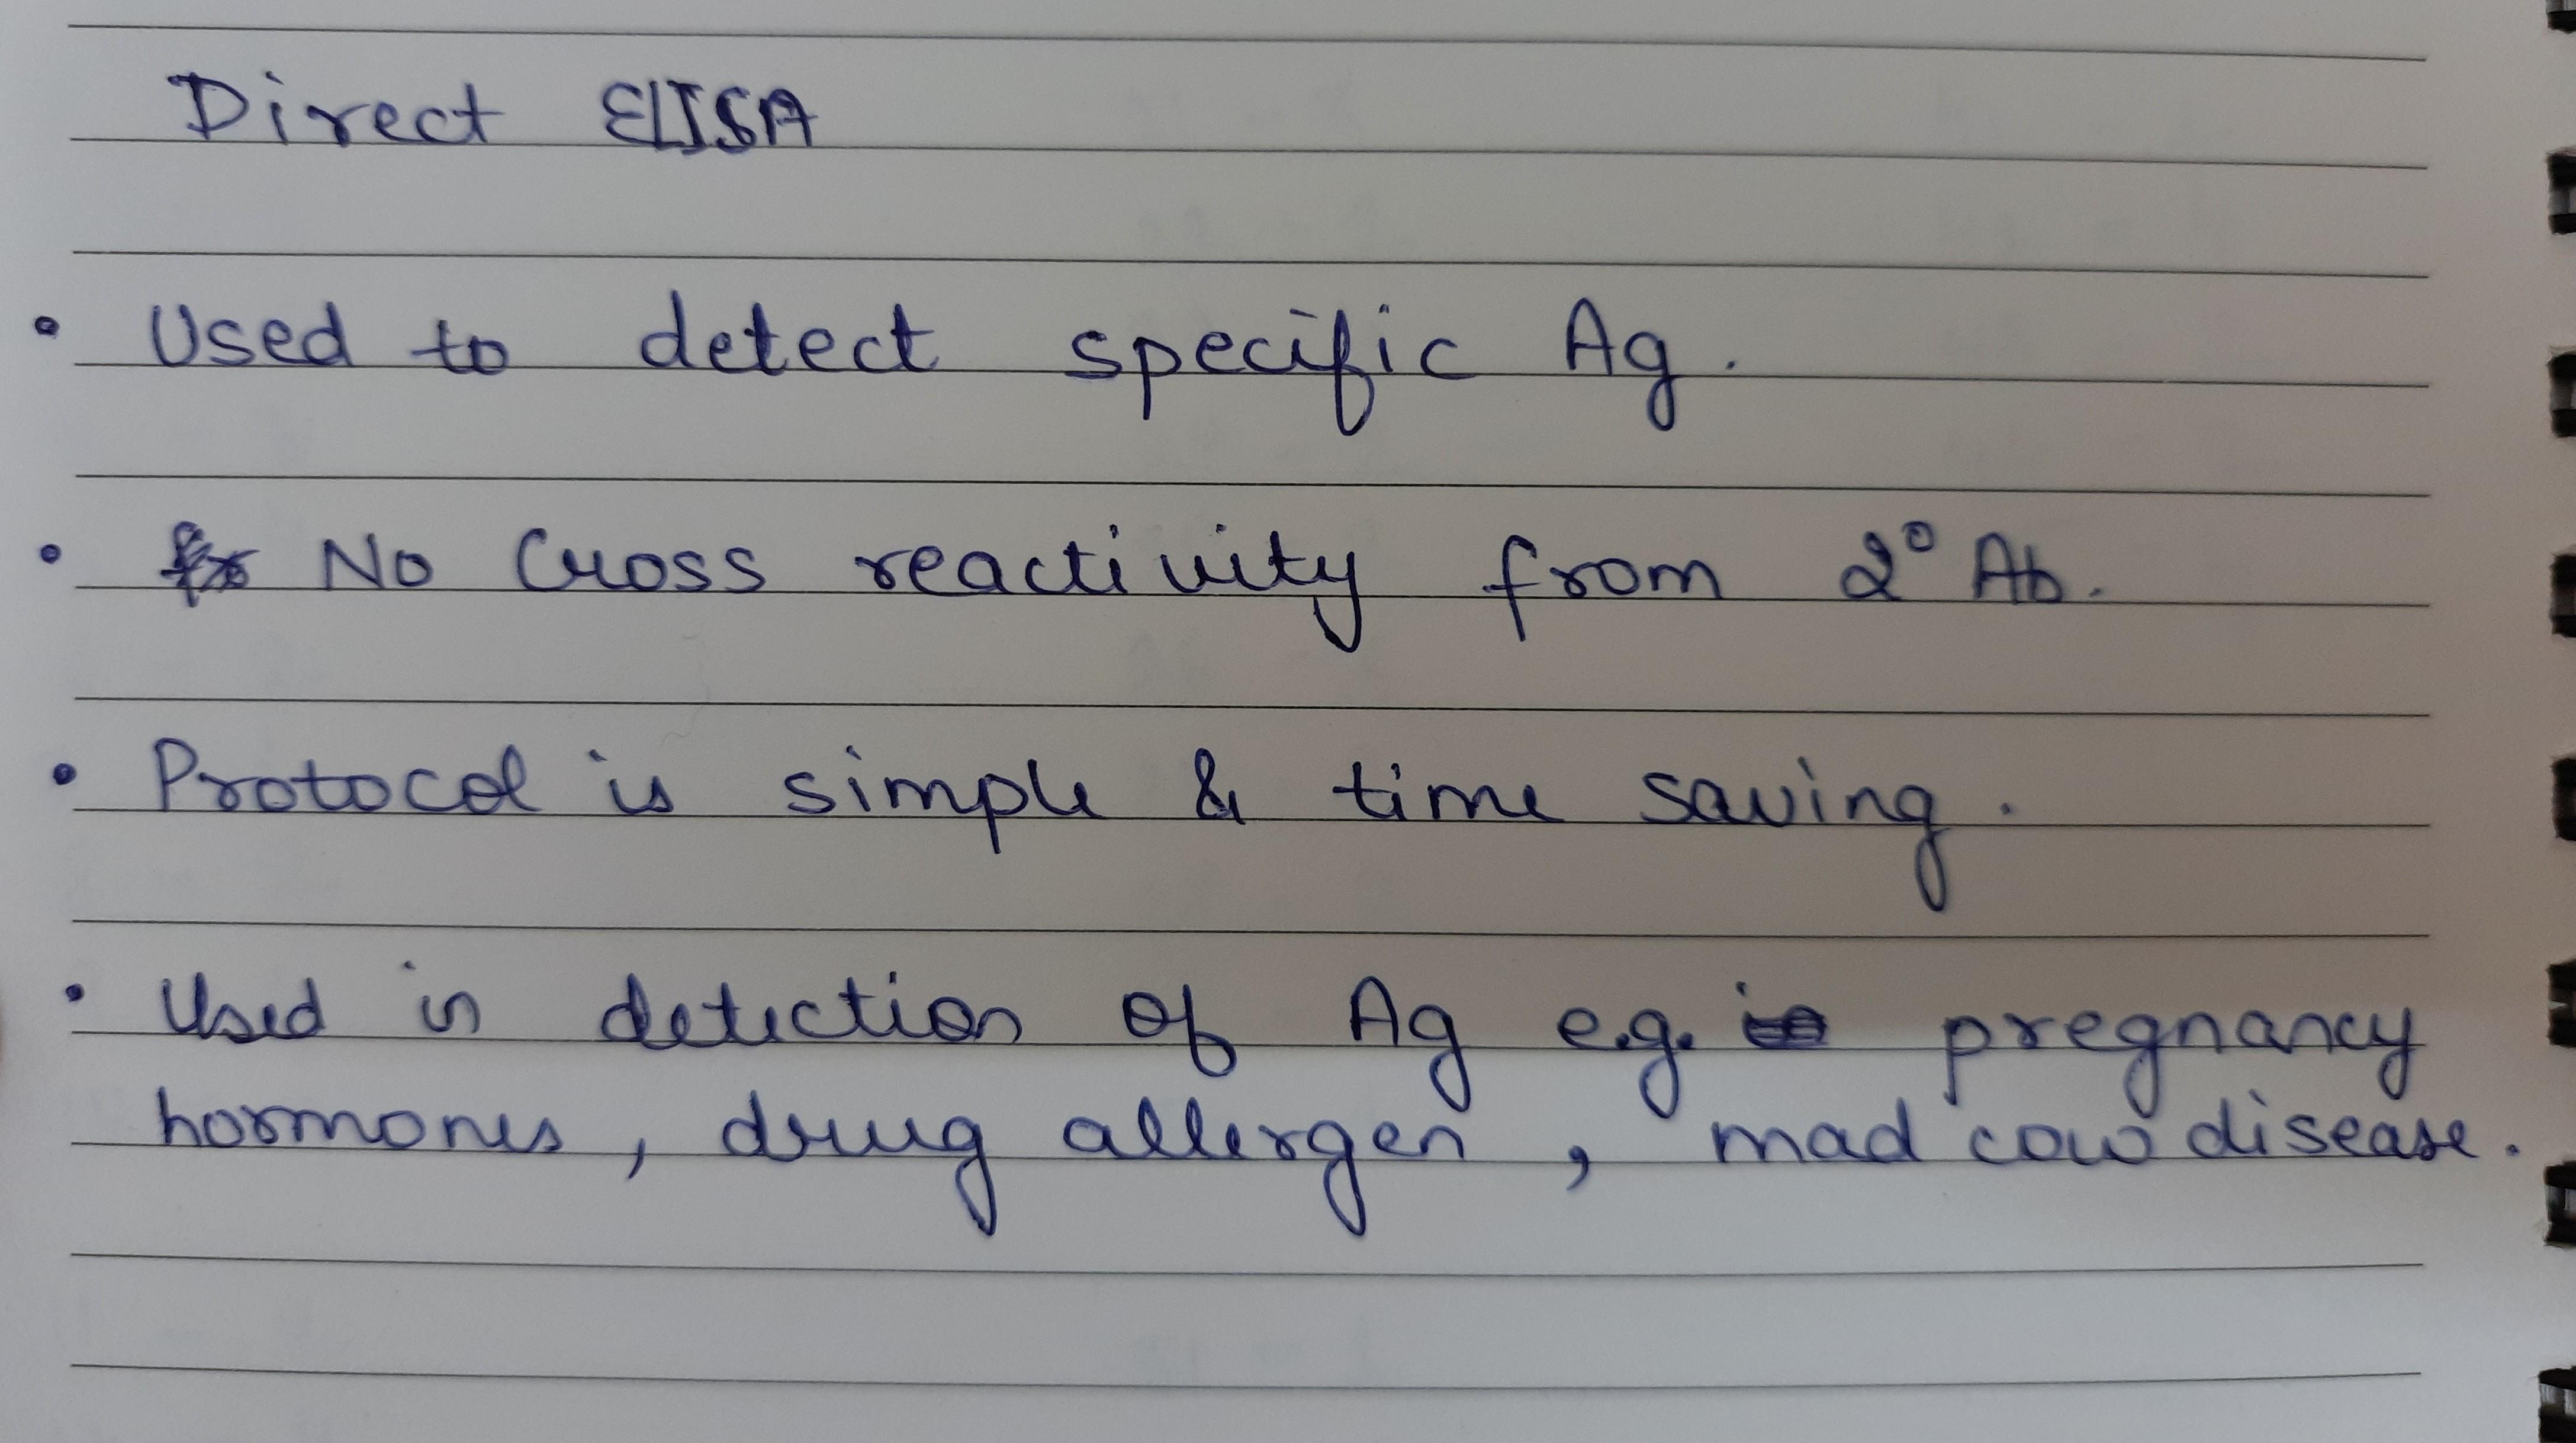 Direct ELISA
• Used to detect specific Ag.
• No Cross reactivity from 2° Ab.
• Protocol is simple & time saving.
• Used in detection of Ag e.g. pregnancy
hormones, drug allergen, mad cow disease.